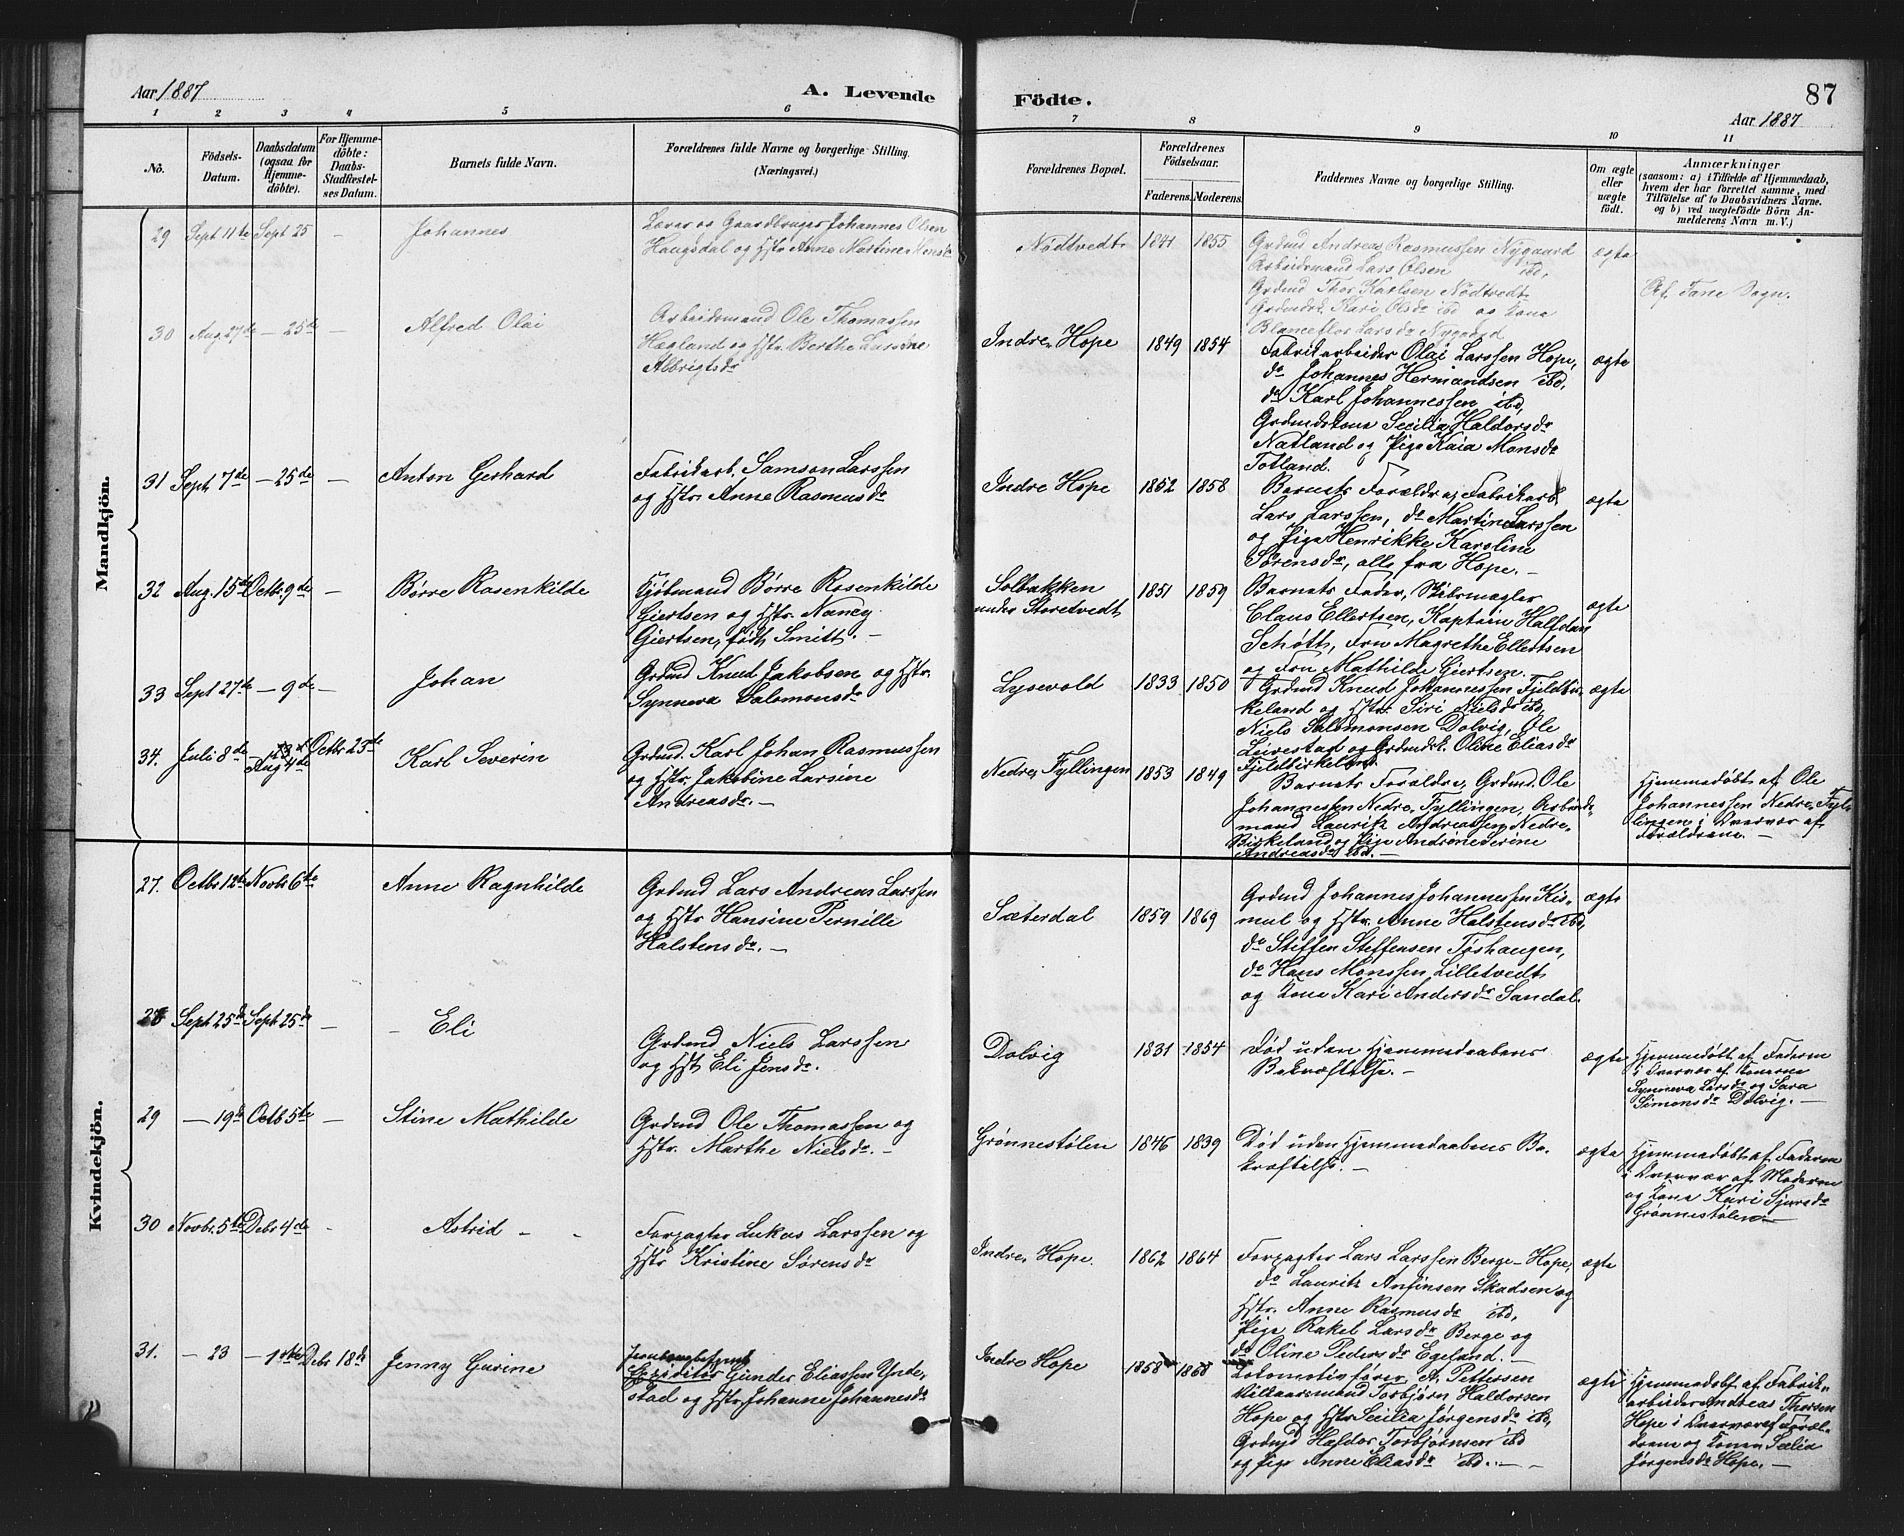 Aar 1887
A. Levende
Födte.
87
Aar 1887
1 2 3 4 5 6 7 8 9 10 11
No.
Födsels-Datum.
Daabsdatum (ogsaa for Hjemmedöbte).
For Hjemmedöbte: Daabs-Stadfæstelses Datum.
Barnets fulde Navn.
Forældrenes fulde Navne og borgerlige Stilling. (Næringsvei.)
Forældrenes Bopæl.
Forældrenes Födselsaar.
Faderens.
Moderens.
Faddernes Navne og borgerlige Stilling.
Om ægte eller uægte födt.
Anmærkninger
(saasom: a) i Tilfælde af Hjemmedaab, hvem der har forrettet samme, med Tilföielse af to Daabsvidners Navne. og b) ved uægtefödte Börn Anmelderens Navn m. V.)
Mandkjön.
29
Sept 11te
Sept 25
-
Johannes
Lærer og Gaardbruger Johannes Olsen
Haugsdal og Hstr Anne Martine Monsdr
Nödtvedt
1841
1855
Grdmd Andreas Rasmussen Nygaard
Arbeidsmand Lars Olsen ibd,
Grdmd Thor Karlsen Nödtvedt
Grdmdst. Kari Olsdr ibd og Kone
Blanceflor Larsdr Nygaard
ægte
Af Fane Sogn.
30
Aug. 27de
- 25de
-
Alfred Olai
Arbeidsmand Ole Thomassen
Hægland og Hstr. Berthe Larsine
Albrigtsdr
Indre Hope
1849
1854
Fabrikarbeider Olai Larssen Hope,
do Johannes Hermandsen ibd,
do Karl Johannessen ibd,
Grdmdskone Secilia Haldorsdr
Natland og Pige Kaia Monsdr
Totland.
ægte
31
Sept 7de
- 25de
-
Anton Gerhard
Fabrikarb. Samson Larssen
og Hstr. Anne Rasmusdr
Indre Hope
1862
1858
Barnets Forældre og Fabrikarb
Lars Larssen, do Martin Larssen
og Pige Henrikke Karoline
Sørensdr, alle fra Hope. -
ægte
32
Aug. 15de
Octbr. 9de
-
Børre Rosenkilde
Kjøbmand Børre Rosenkilde
Giertsen og Hstr. Nancy
Giertsen, født Smitt. -
Solbakken
under Storetvedt
1851
1859
Barnets Fader, Skibsmægler
Claus Ellertsen, Kaptein Halfdan
Schøtt, Fru Magrethe Ellertsen
og Fru Mathilde Giertsen.
ægte
33
Sept 27de
- 9de
-
Johan
Grdmd Knud Jakobsen og Hstr.
Synneva Salomonsdr
Lysevold
1833
1850
Grdmd Knud Johannessen Fjeldbir-
keland og Hstr. Siri Nielsdr ibd,
Niels Salomonsen Dolvig, Ole
Leirestad og Grdmdst. Oline Eliasdr
Fjeldbirkeland
ægte
34.
Juli 8de
Aug 4de
Octbr 23de
Karl Severin
Grdmd. Karl Johan Rasmussen
og Hstr Jakobine Larsine
Andreasdr. -
Nedre Fyllingen
1853
1849
Barnets Forældre, Grdmd. Ole
Johannessen Nedre Fyllingen, Arbeids-
mand Laurits Andreassen Nedre
Birkeland og Pige
Andreasdr ibd. -
Hjemmedøbt af Ole
Johannessen Nedre Fyl-
lingen i Overvær af
Forældrene. -
Kvindekjön.
27.
Octbr 12te
Novbr 6te
Anne Ragnhilde
Grdmd Lars Andreas Larssen
og Hstr Hansine Pernille
Halstensdr. -
Sæterdal
1859
1869
Grdmd Johannes Johannessen Kis-
mul og Hstr. Anne Halstensdr ibd,
do Steffen Steffensen Toshaugen,
do Hans Monssen Lilletvedt
og Kone Kari Andersdr Sandal
ægte
28
Sept 25de
Sept 25de
-
- Eli
Grdmd Niels Larssen
og Hst Eli Jensdr.
Dolvig
1831
1854
Død uden Hjemmedaabens
Bekræftelse. -
ægte
Hjemmedøbt af Faderen
i Overvær af Konerne
Synneva Larsdr og Sara
Simonsdr Dolvig. -
29
- 19de
Octb 5te
-
Stine Mathilde
Grdmd Ole Thomassen og
Hstr. Marthe Nielsdr. -
Grønnestølen
1846
1839
Død uden Hjemmedaabens Be-
kræftelse. -
ægte
Hjemmedøbt af Faderen
i Overvær af Moderen
og Kone Kari Sjursdr
Grønnestølen -
30
Novbr. 5te
Debr 4de
-
Astrid -
Forpagter Lukas Larssen og
Hstr Kristine Sørensdr
Indre Hope.
1862
1864
Forpagter Lars Larssen Berge-Hope,
do Laurits Anfinsen Skadsen og
Hstr. Anne Rasmusdr ibd,
Pige Rakel Larsdr Berge og
do Oline Pedersdr Egeland. -
ægte
31.
- 23
Debr 18de
Jenny Gurine
Gunder Eliassen Ynde-
stad og Hstr. Johanne Johannesdr
Indre Hope
1858
1868
Lokomotivfører A. Pettersen
Torbjørn Haldorsen
Hope og Hstr Secilia Jørgensdr ibd,
Grdmd Haldor Torbjørnsen ibd
og Pige Anne Eliasdr ibd. -
ægte
Hjemmedøbt af Fabrik-
arbeider Andreas Thorsen
Hope i Overvær af Foræl-
drene og Konen Secilia
Jørgensdr Hope. -